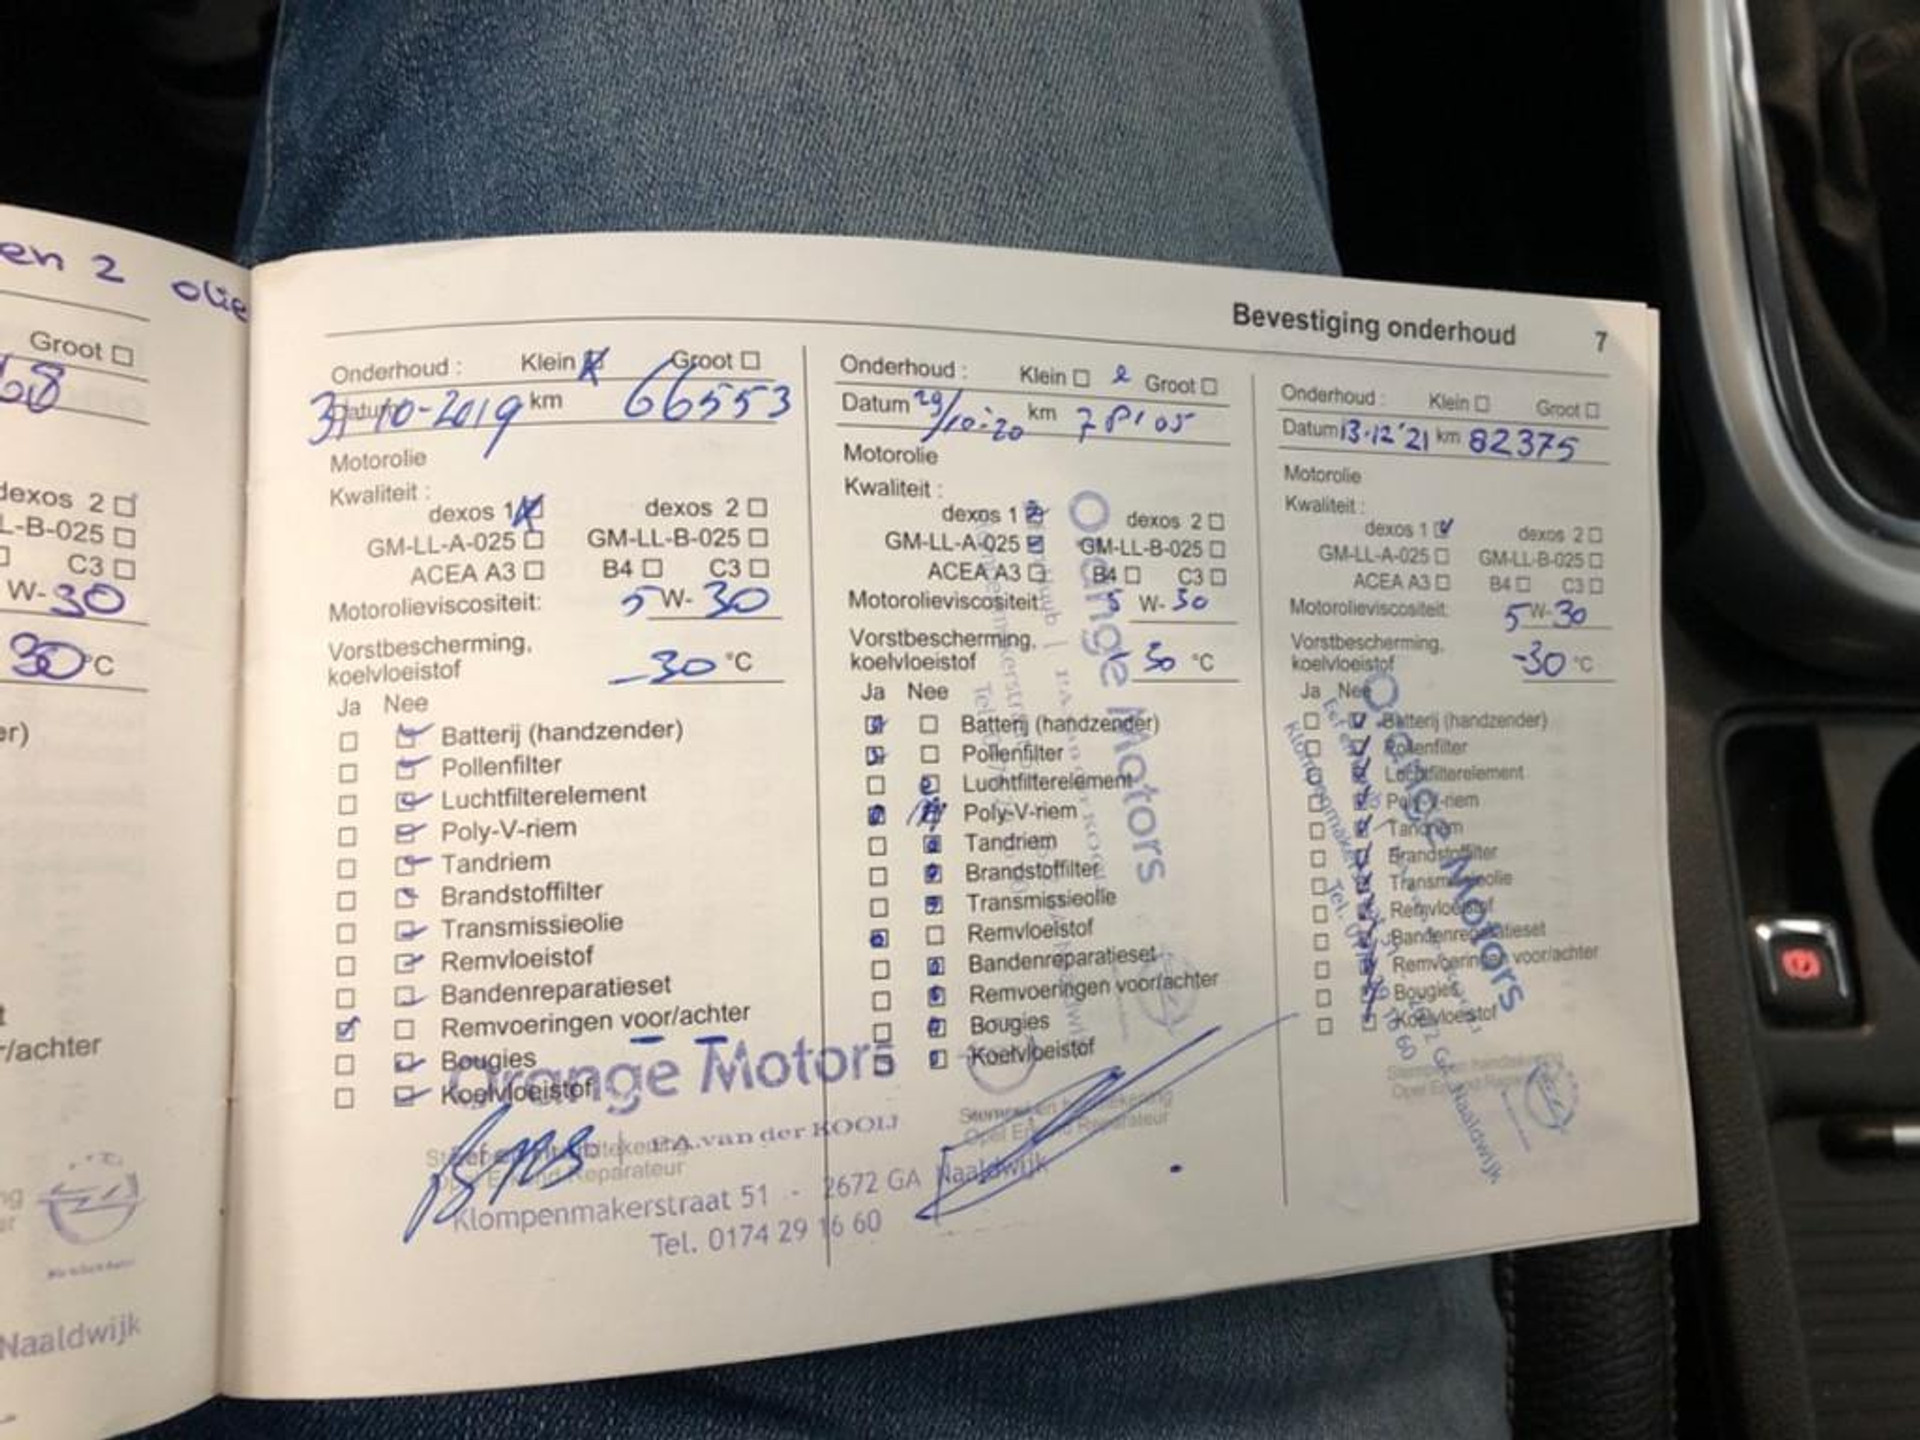 en 2 olie
Groot
68
dexos 2
L-B-025
C3
W-30
30°C
r/achter
Naaldwijk
Bevestiging onderhoud 7
Onderhoud : Klein Groot
Datum 31-10-2019 km 66553
Motorolie
Kwaliteit :
dexos 1 dexos 2
GM-LL-A-025 GM-LL-B-025
ACEA A3 B4 C3
Motorolieviscositeit: 5 W-30
Vorstbescherming,
koelvloeistof -30 °C
Ja Nee
Batterij (handzender)
Pollenfilter
Luchtfilterelement
Poly-V-riem
Tandriem
Brandstoffilter
Transmissieolie
Remvloeistof
Bandenreparatieset
Remvoeringen voor/achter
Bougies
Koelvloeistof
Orange Motors
P.A. van der KOOIJ
Klompenmakerstraat 51 - 2672 GA Naaldwijk
Tel. 0174 29 16 60
Onderhoud : Klein Groot
Datum 29/10-20 km
Motorolie
Kwaliteit :
dexos 1 dexos 2
GM-LL-A-025 GM-LL-B-025
ACEA A3 B4 C3
Motorolieviscositeit: 5 W-30
Vorstbescherming,
koelvloeistof -30 °C
Ja Nee
Batterij (handzender)
Pollenfilter
Luchtfilterelement
Poly-V-riem
Tandriem
Brandstoffilter
Transmissieolie
Remvloeistof
Bandenreparatieset
Remvoeringen voor/achter
Bougies
Koelvloeistof
Orange Motors
Onderhoud : Klein Groot
Datum 13-12'21 km 82375
Motorolie
Kwaliteit :
dexos 1 dexos 2
GM-LL-A-025 GM-LL-B-025
ACEA A3 B4 C3
Motorolieviscositeit: 5 W-30
Vorstbescherming,
koelvloeistof -30 °C
Ja Nee
Batterij (handzender)
Pollenfilter
Luchtfilterelement
Poly-V-riem
Tandriem
Brandstoffilter
Transmissieolie
Remvloeistof
Bandenreparatieset
Remvoeringen voor/achter
Bougies
Koelvloeistof
Orange Motors
Naaldwijk